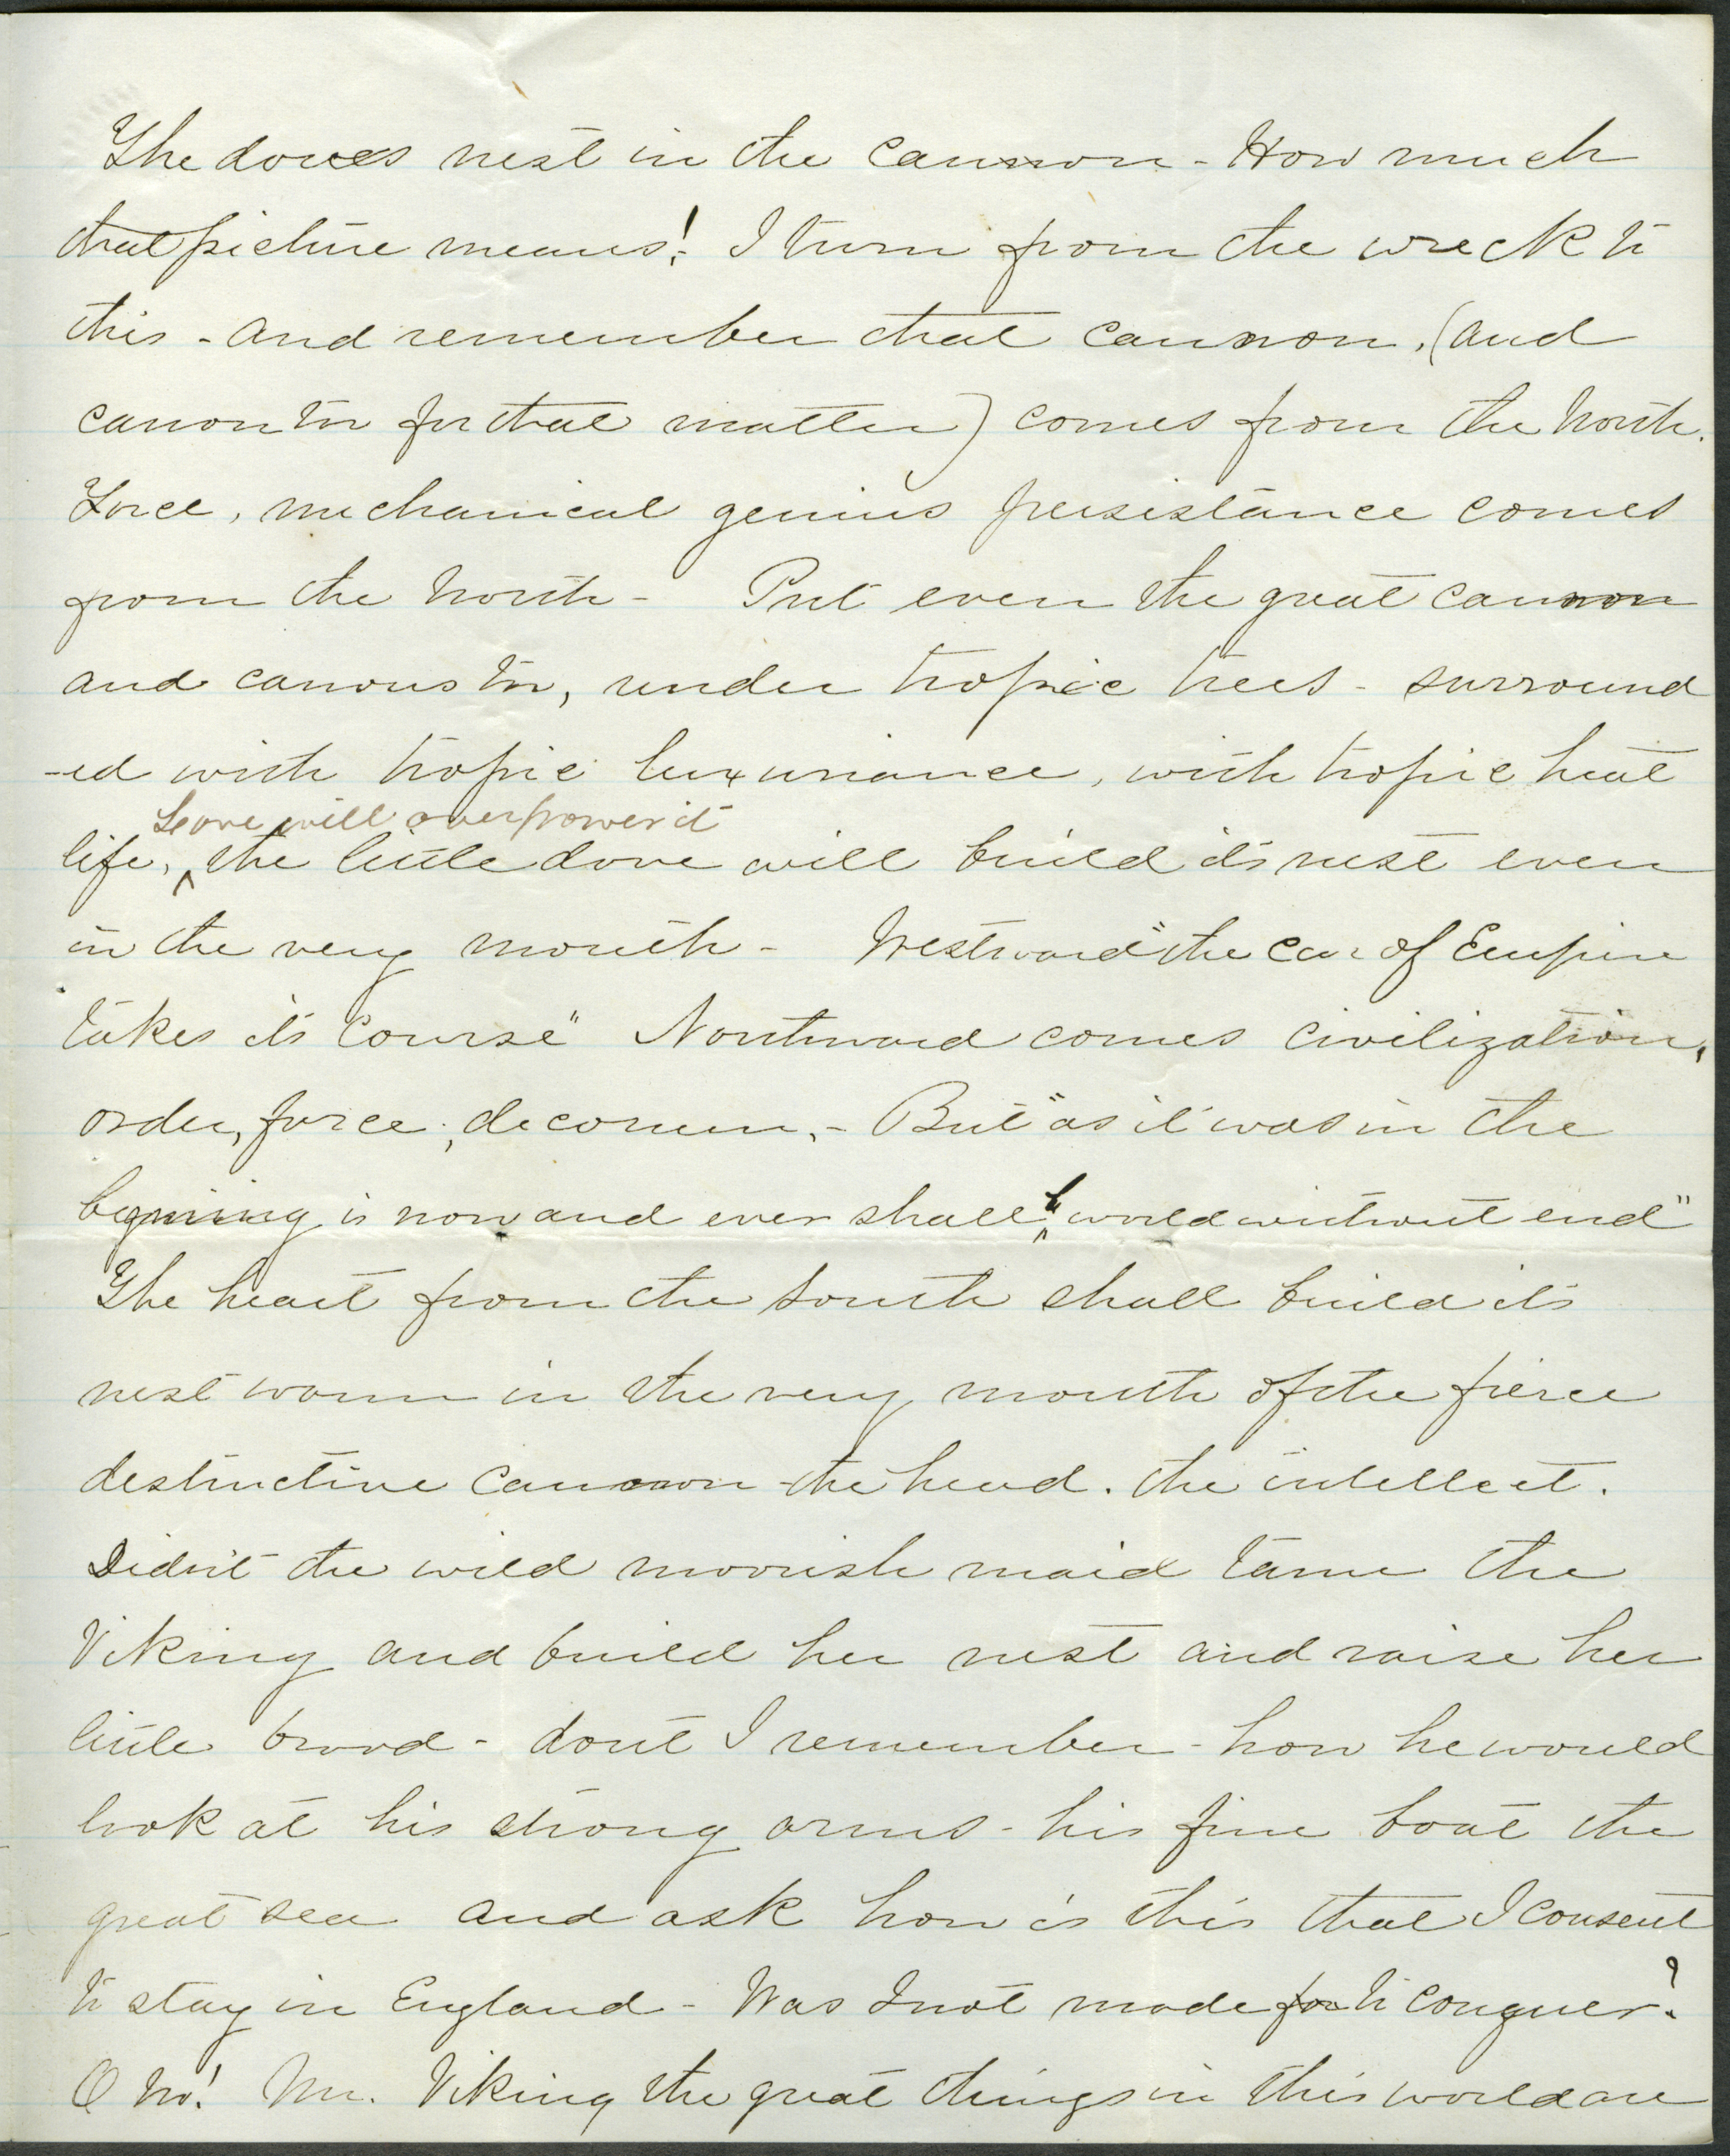 The doves nest in the cannon - How much
that picture means! I turn from the wreck to
this - and remember that cannon, (and
canon too for that matter) comes from the North.
Force, mechanical genius persistance comes
from the North - Put even the great cannon
and canons too, under tropic trees - surround
-ed with tropic luxuriance, with tropic heat
Love will overpower it
life, ^ the little dove will build it's nest even
in the very mouth - Westward "the car of Empire
takes it's Course" Northward comes civilization,
order, force, decorum, - But "as it was in the
begining is now and ever shall ^be world without end"
The heart from the South shall build it's
nest warm in the very mouth of the fierce
destructive cannon - the head. the intellect.
Didn't the wild moorish maid tame the
Viking and build her nest and raise her
little brood - dont I remember - how he would
look at his strong arms - his fine boat the
great sea and ask how is this that I consent
to stay in England - Was I not made for to conquer?
O No! Mr. Viking the great things in this world are